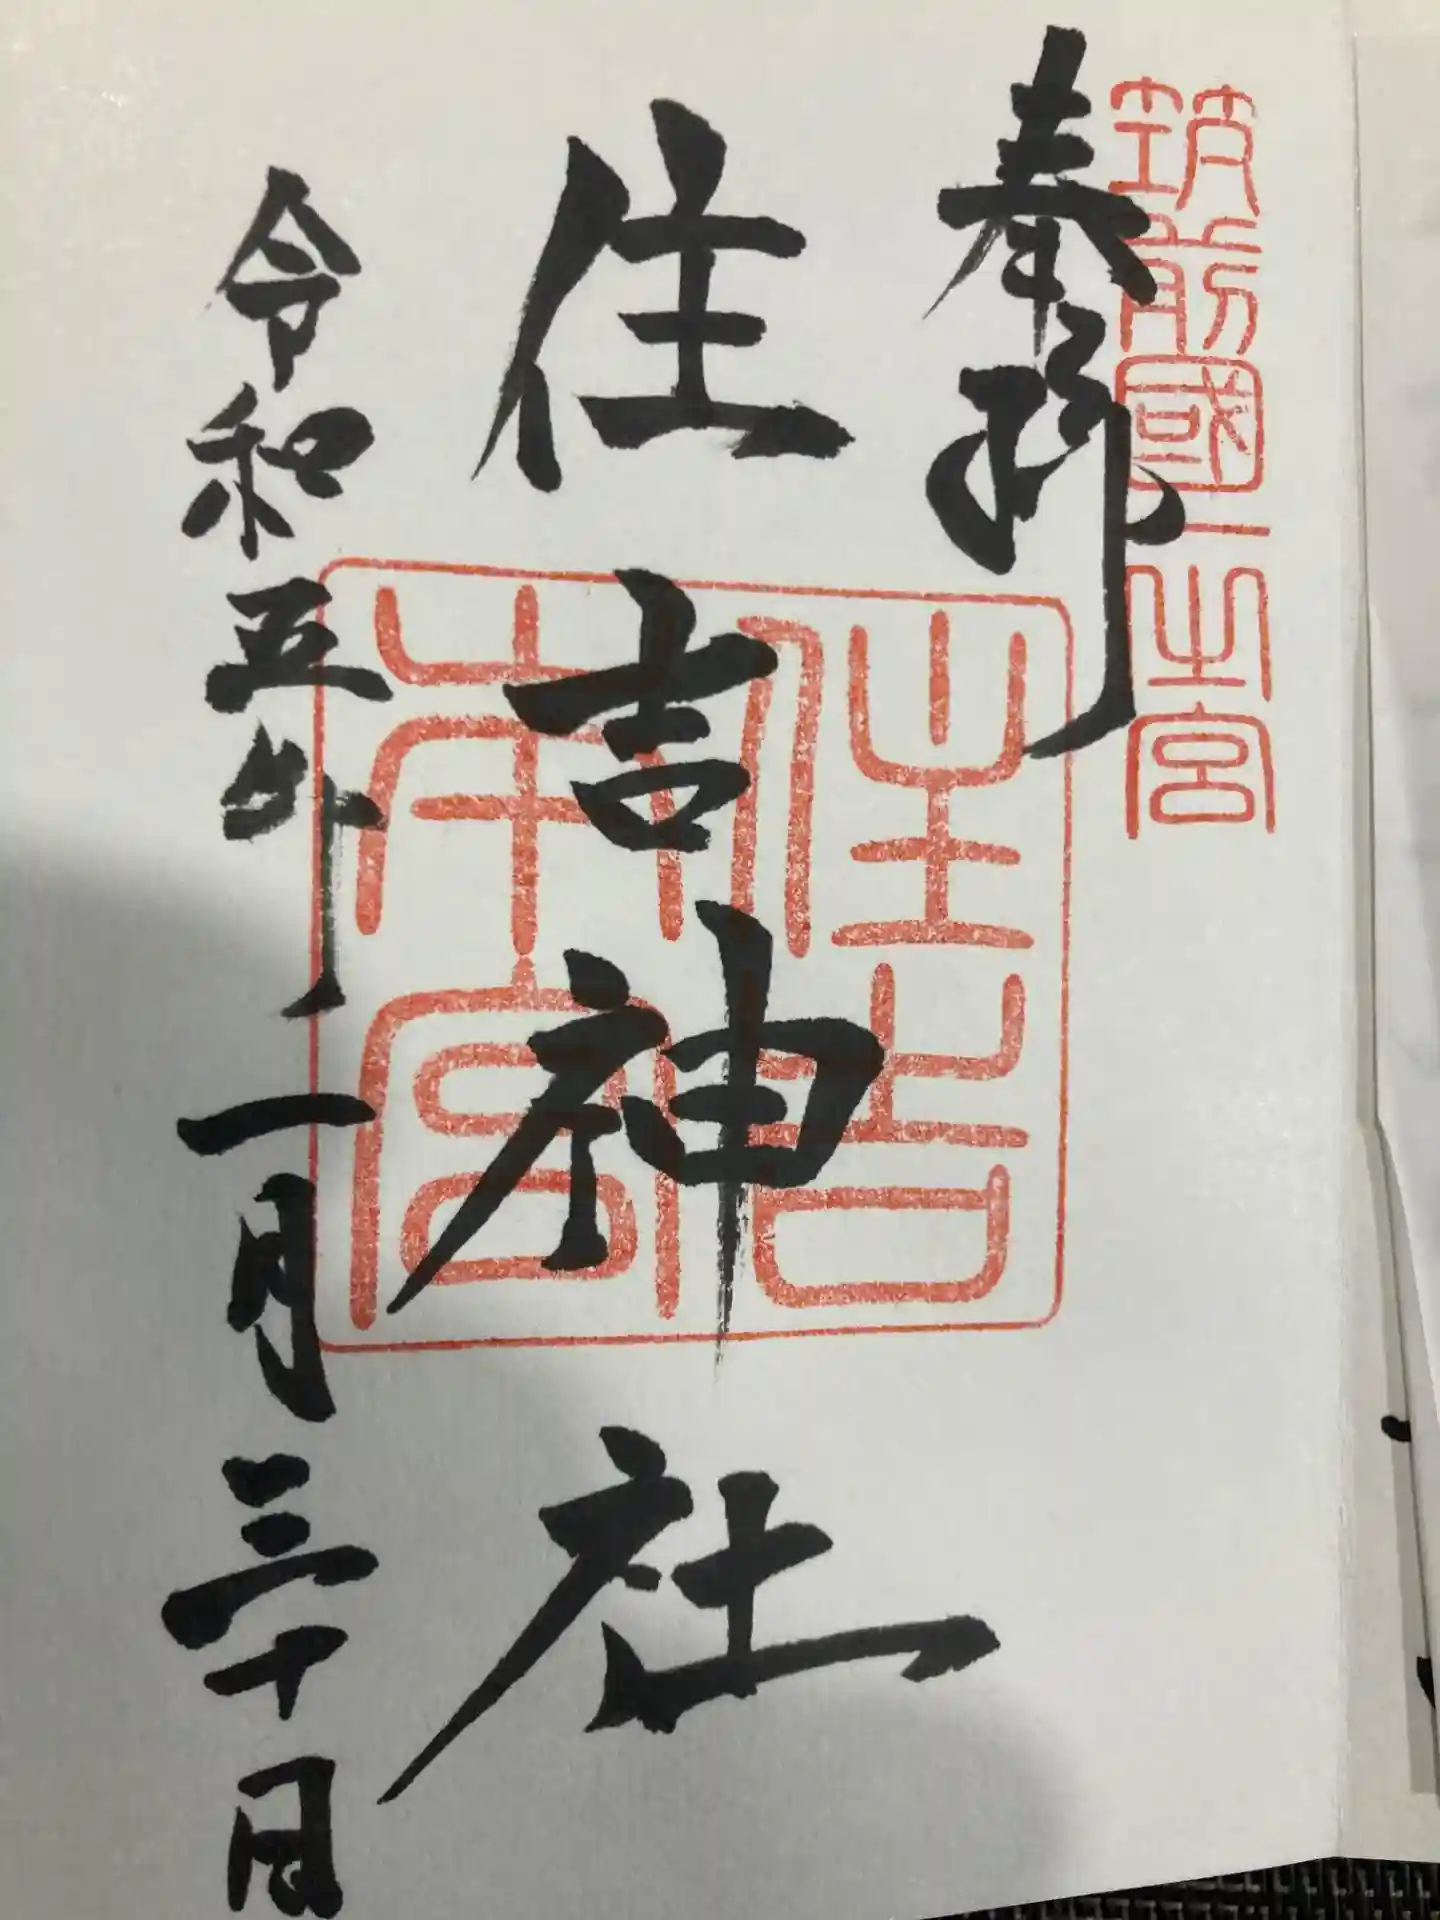 筑前國一之宮
奉拝
住吉神社
住吉本宮
令和五年一月三十日